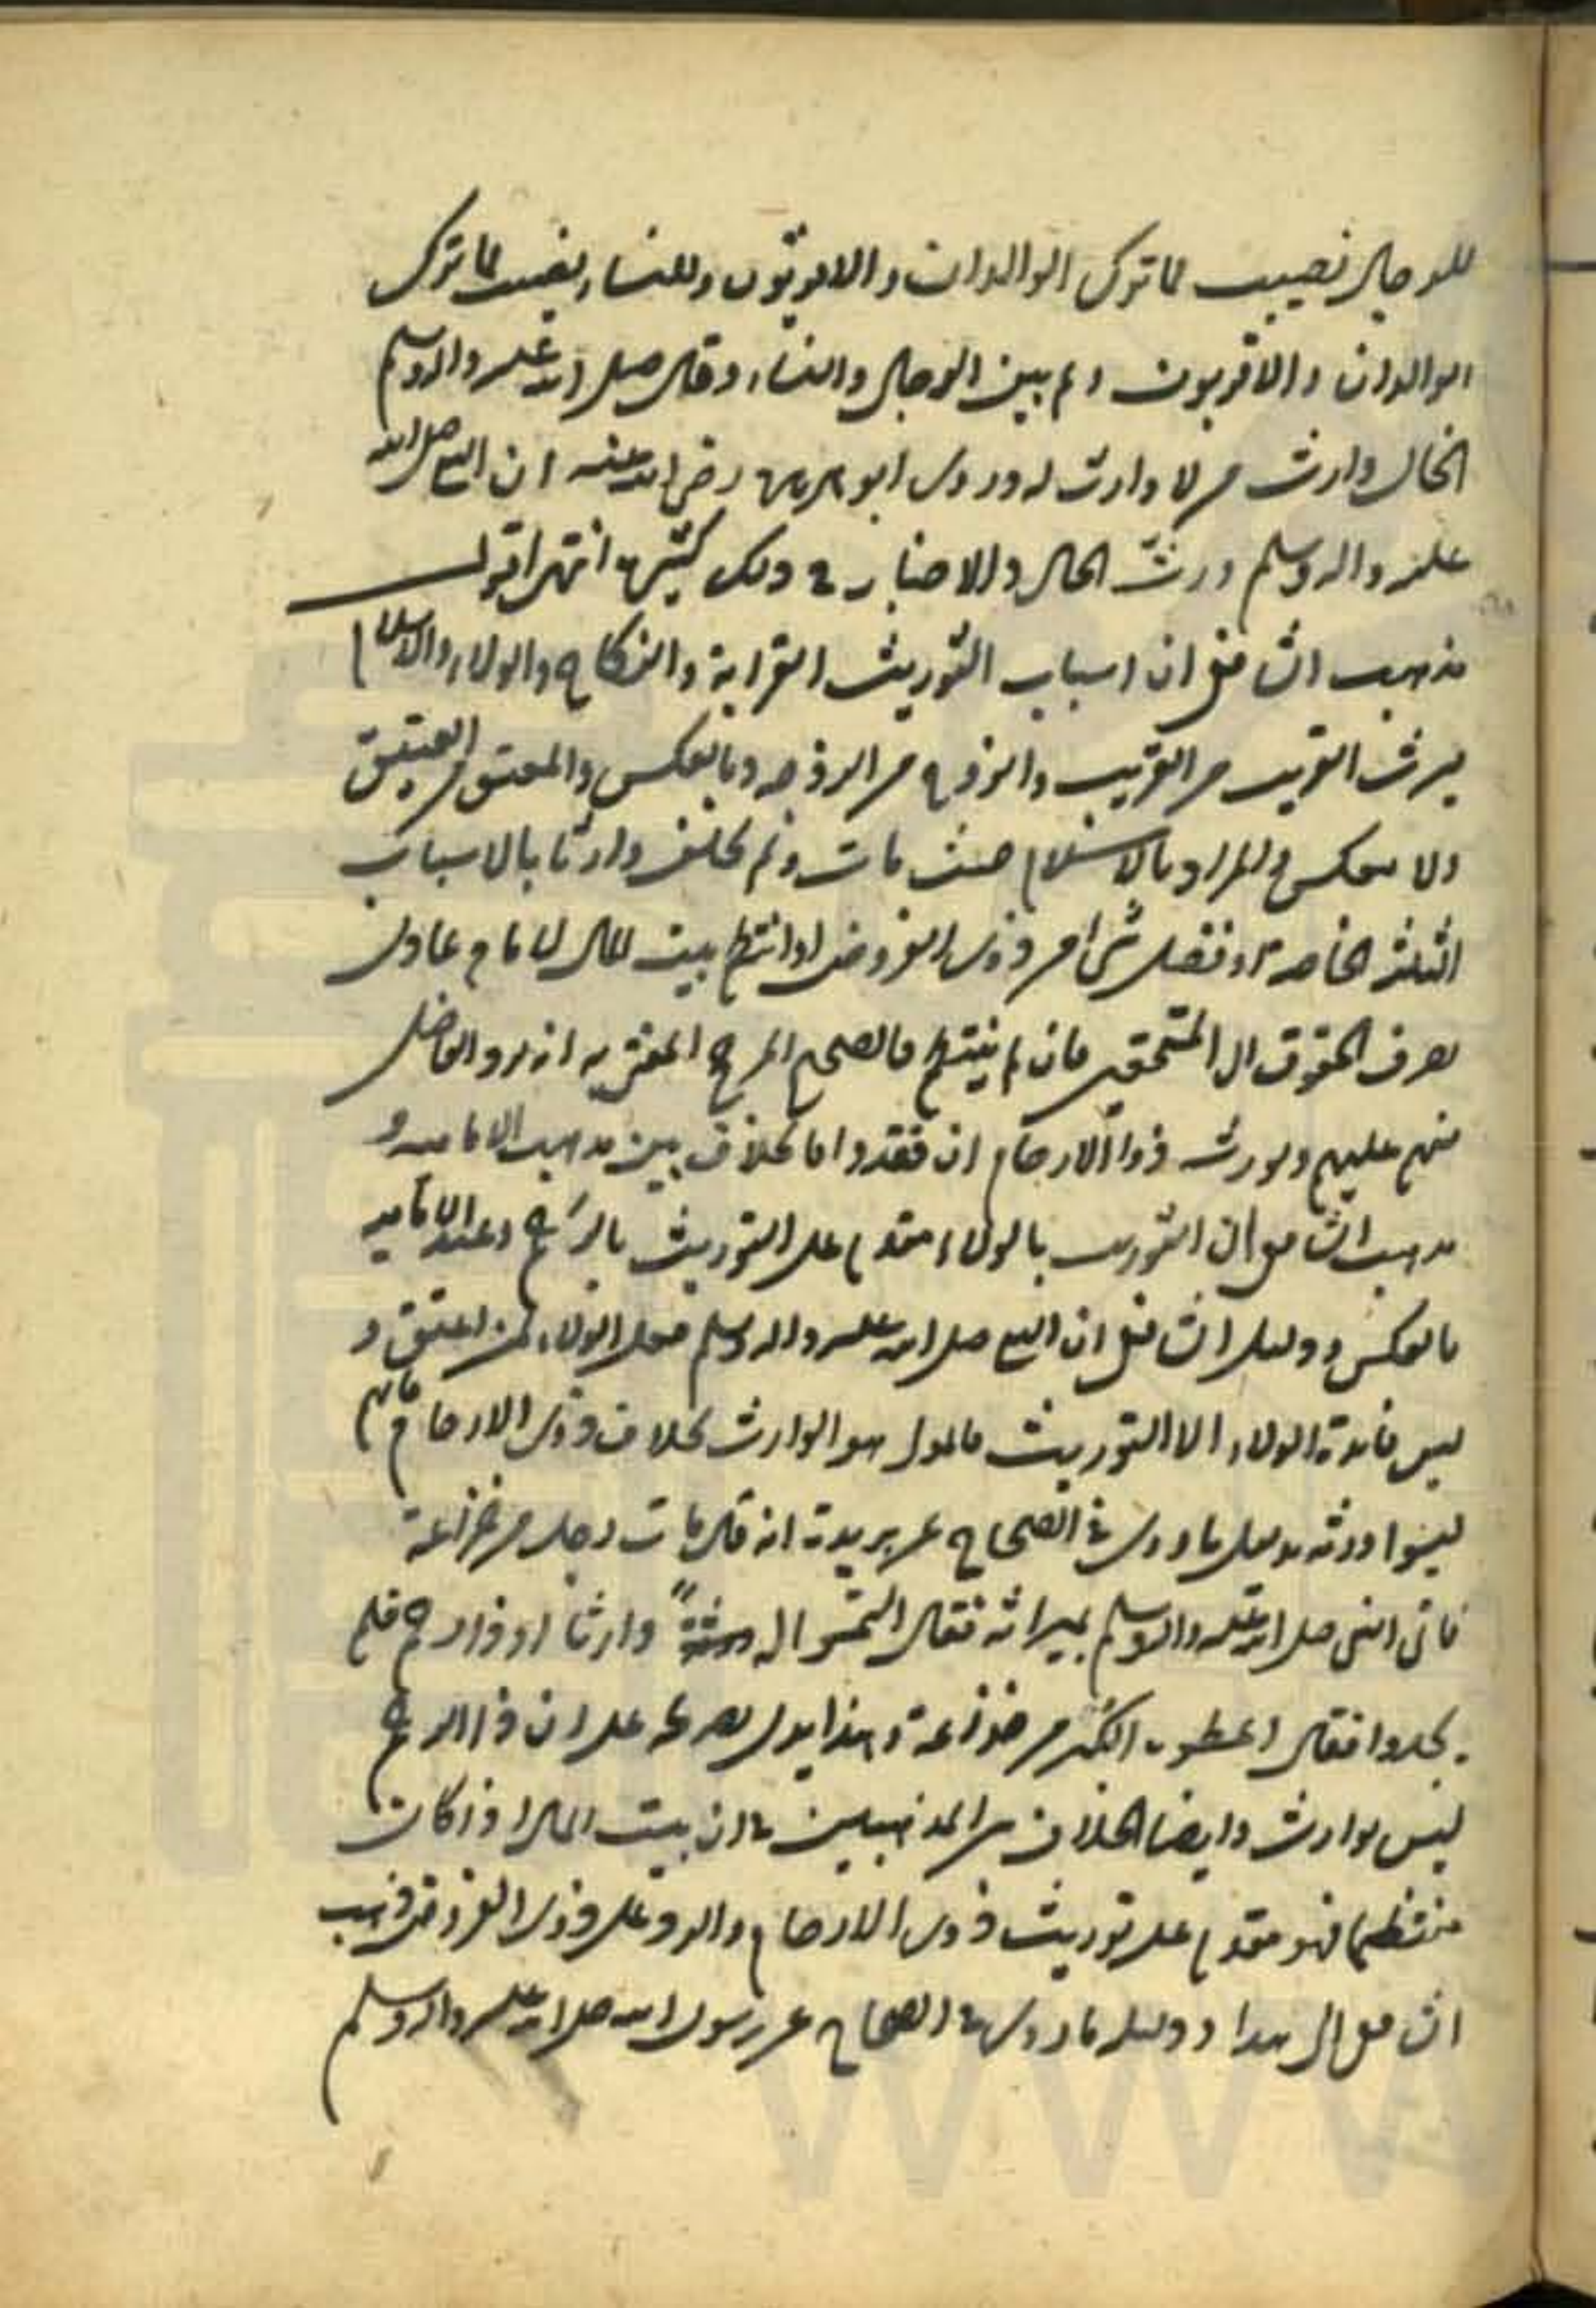 للرجال نصيب مما ترك الوالدان والاقربون وللنساء نصيب مما ترك
الوالدان والاقربون ولم يبين الرجال والنساء وقال صلى الله عليه واله وسلم
الخال وارث من لا وارث له وروى ابو هريرة رضى الله عنه ان النبي صلى الله
عليه واله وسلم ورث الخال والاخبار في ذلك كثيرة انتهى اقول
مذهب الشافعي ان اسباب التوريث القرابة والنكاح والولاء والاسلام
يرث القريب من القريب والزوج من الزوجه وبالعكس والمعتق من العتيق
ولا بعكس والمراد بالاسلام حيث مات ولم يخلف وارثا بالاسباب
الثلثة الخاصة او فضل شي من ذوى الفروض اذا انتظم بيت المال لامام عادل
يصرف الحقوق الى المستحقين فان لم ينتظم فالصحيح المرجح المفتى به انه يرد الفاضل
منهم عليهم ويورث ذوا الارحام ان فقدوا فالخلاف بين مذهب الاماميه و
مذهب الشافعي ان التوريث بالولاء مقدم على التوريث بالرحم وعند الاماميه
بالعكس ودليل الشافعي ان النبي صلى الله عليه واله وسلم جعل الولاء لمن اعتق و
ليس فائدة الولاء الا التوريث فالمولى هو الوارث بخلاف ذوى الارحام فانهم
ليسوا ورثه بدليل ما روى في الصحاح عن بريدة انه قال مات رجل من خزاعة
فاتى النبي صلى الله عليه واله وسلم بميراثه فقال التمسوا له وارثا او ذا رحم فلم
يجدوا فقال اعطوه الكبر من خزاعة وهذا يدل بصريحه على ان ذا الرحم
ليس بوارث وايضا الخلاف بين المذهبين في ان بيت المال اذا كان
منتظما فهو مقدم على توريث ذوى الارحام والرد على ذوى الفروض فذهب
الشافعي الى هذا ودليله ما روى في الصحاح عن رسول الله صلى الله عليه واله وسلم